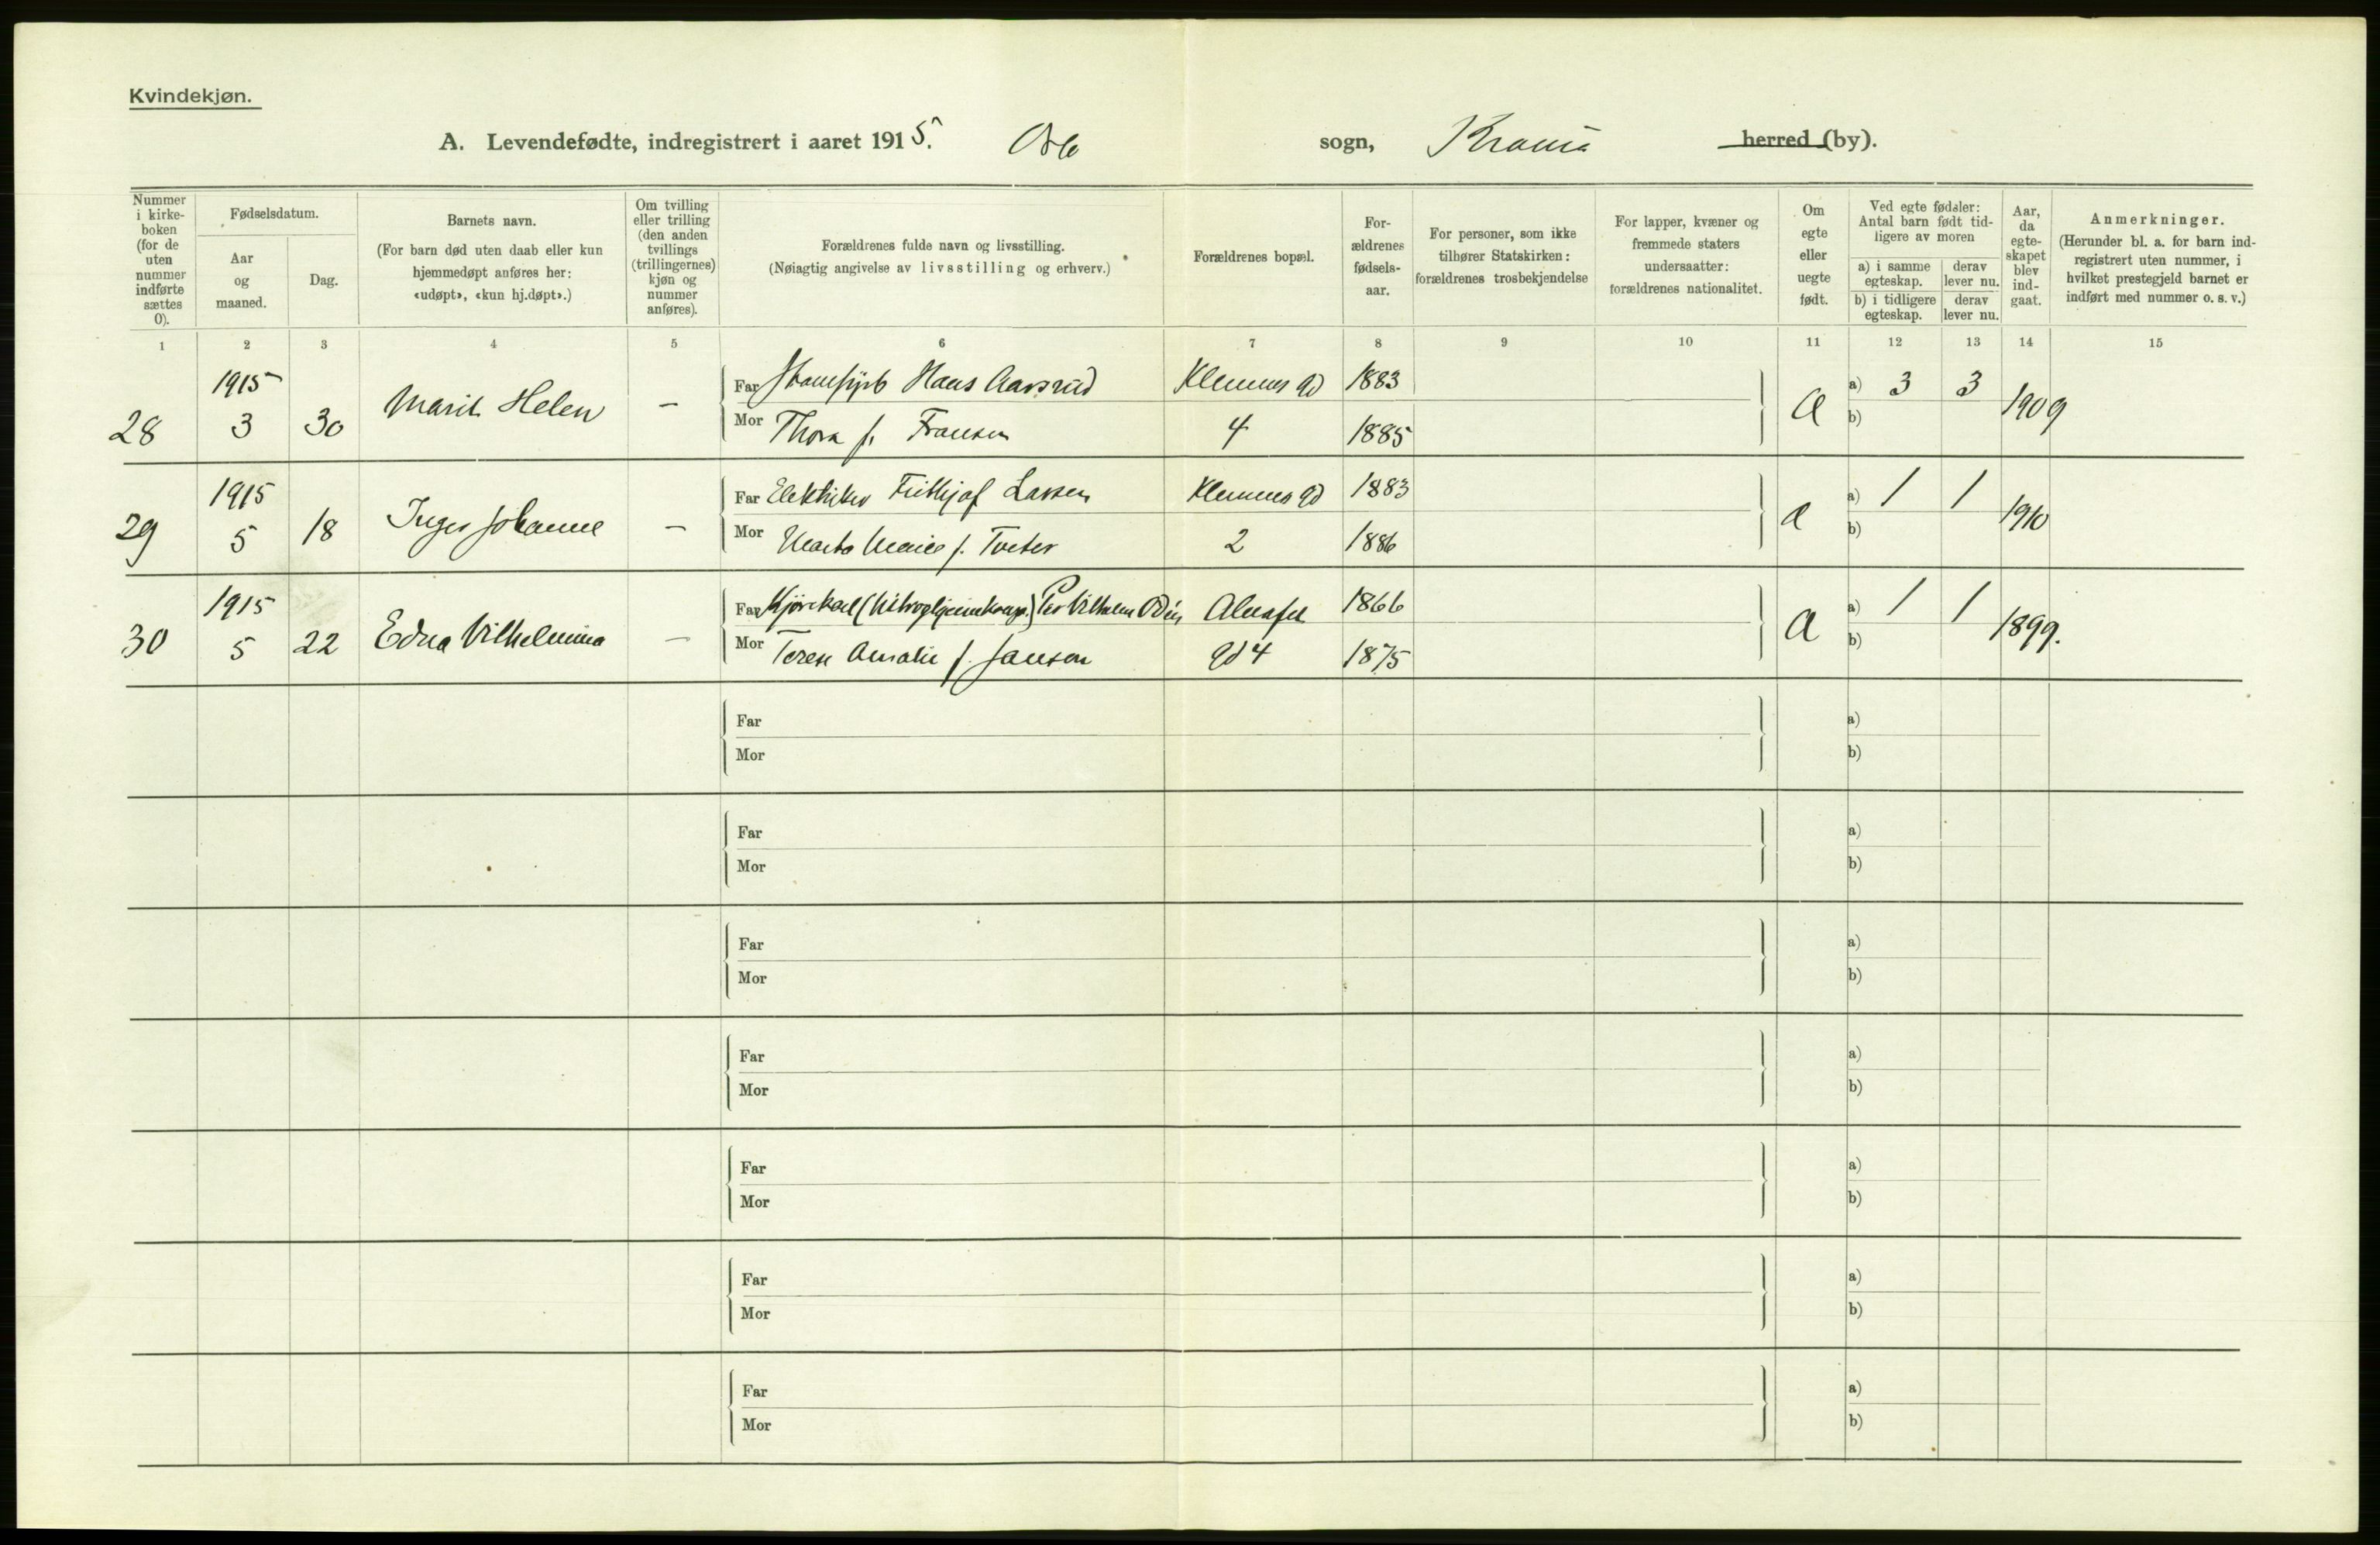 Kvindekjøn.
A. Levendefødte, indregistrert i aaret 1915. Oslo sogn, Krania herred (by).
Nummer i kirke-boken (for de uten nummer indførte sættes 0).
Fødselsdatum.
Aar og maaned.
Dag.
Barnets navn.
(For barn død uten daab eller kun hjemmedøpt anføres her: «udøpt», «kun hj.døpt».)
Om tvilling eller trilling (den anden tvillings (trillingernes) kjøn og nummer anføres).
Forældrenes fulde navn og livsstilling.
(Nøiagtig angivelse av livsstilling og erhverv.)
Forældrenes bopæl.
For-ældrenes fødsels-aar.
For personer, som ikke tilhører Statskirken: forældrenes trosbekjendelse
For lapper, kvæner og fremmede staters undersaatter: forældrenes nationalitet.
Om egte eller uegte født.
Ved egte fødsler: Antal barn født tid-ligere av moren
a) i samme egteskap.
derav lever nu.
b) i tidligere egteskap.
derav lever nu.
Aar, da egte-skapet blev ind-gaat.
Anmerkninger.
(Herunder bl. a. for barn ind-registrert uten nummer, i hvilket prestegjeld barnet er indført med nummer o. s. v.)
1 2 3 4 5 6 7 8 9 10 11 12 13 14 15
28 1915 3 30 Marit Helen –
Far Hans Aarsrud Klemens gd 1883
Mor Thora f. Fransen 4 1885
a a) 3 3 1909
b)
29 1915 5 18 Inger Johanne –
Far Elektriker Frithjof Larsen Klemens gd 1883
Mor Marie f. Tveter 2 1886
a a) 1 1 1910
b)
30 1915 5 22 Edna Vilhelmina –
Far Kjørekarl Per Vilhelm Odin Alnafet 1866
Mor Terese Amalie f. Jansen gd 4 1875
a a) 1 1 1899.
b)
Far a)
Mor b)
Far a)
Mor b)
Far a)
Mor b)
Far a)
Mor b)
Far a)
Mor b)
Far a)
Mor b)
Far a)
Mor b)